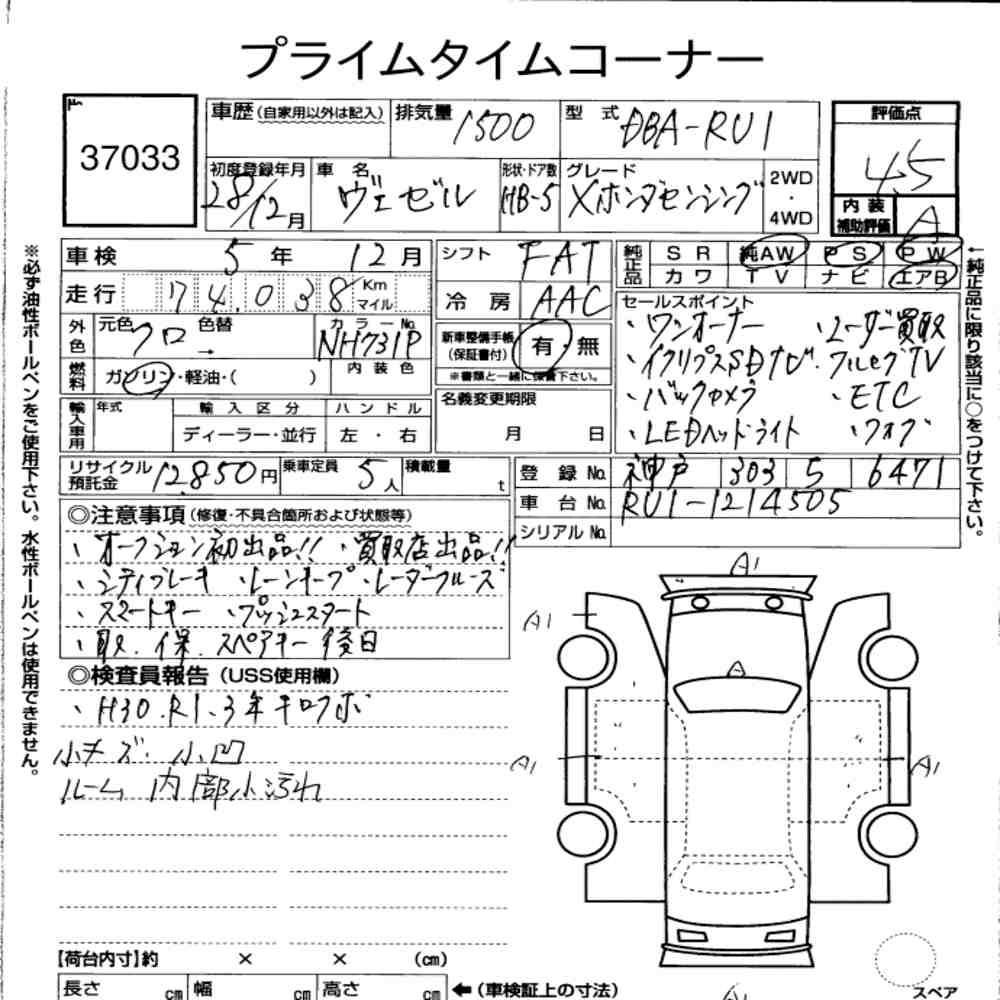 プライムタイムコーナー
37033
車歴 (自家用以外は記入) 排気量 1500 型式 DBA-RU1
評価点 4.5
初度登録年月 28/12月 車名 ヴェゼル 形状・ドア数 HB-5 グレード Xホンダセンシング 2WD・4WD
内装補助評価 A
車検 5年 12月 シフト FAT
純正品 SR 純AW PS PW
カワ TV ナビ エアB
走行 74,038 Km マイル 冷房 AAC
外色 元色 クロ 色替 → カラーNo. NH731P
内装色
燃料 ガソリン・軽油・( )
新車整備手帳(保証書付) 有 無
※書類と一緒に保管下さい。
セールスポイント
・ワンオーナー ・レーダー買取
・イクリプスSDナビ・フルセグTV
・バックカメラ ・ETC
・LEDヘッドライト ・フォグ
輸入車用 年式 輸入区分 ハンドル
ディーラー・並行 左・右
名義変更期限
月 日
リサイクル預託金 12,850円 乗車定員 5人 積載量 t
登録No. 神戸 303 5 6471
車台No. RU1-1214505
シリアルNo.
◎注意事項(修復・不具合箇所および状態等)
・オークション初出品!! ・買取店出品!!
・シティブレーキ ・レーンキープ ・レーダークルーズ
・スマートキー ・プッシュスタート
・取、保、スペアキー後日
◎検査員報告(USS使用欄)
・H30.R1.3年キロクボ
小キズ・小凹
ルーム内部小汚れ
※必ず油性ボールペンをご使用下さい。水性ボールペンは使用できません。
←純正品に限り該当に○をつけて下さい。
A1
A1
A
A1
A1
【荷台内寸】約 × × (cm)
長さ cm 幅 cm 高さ cm ←(車検証上の寸法)
A1
スペア